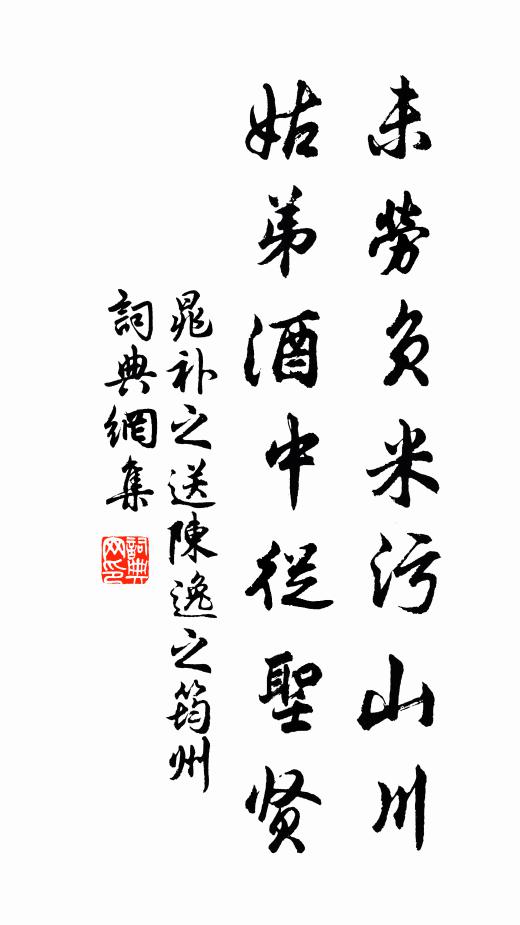 未劳负米污山川
姑弟酒中從聖贤
晁补之送陳逸之筠州
詞典網集
詞典网印